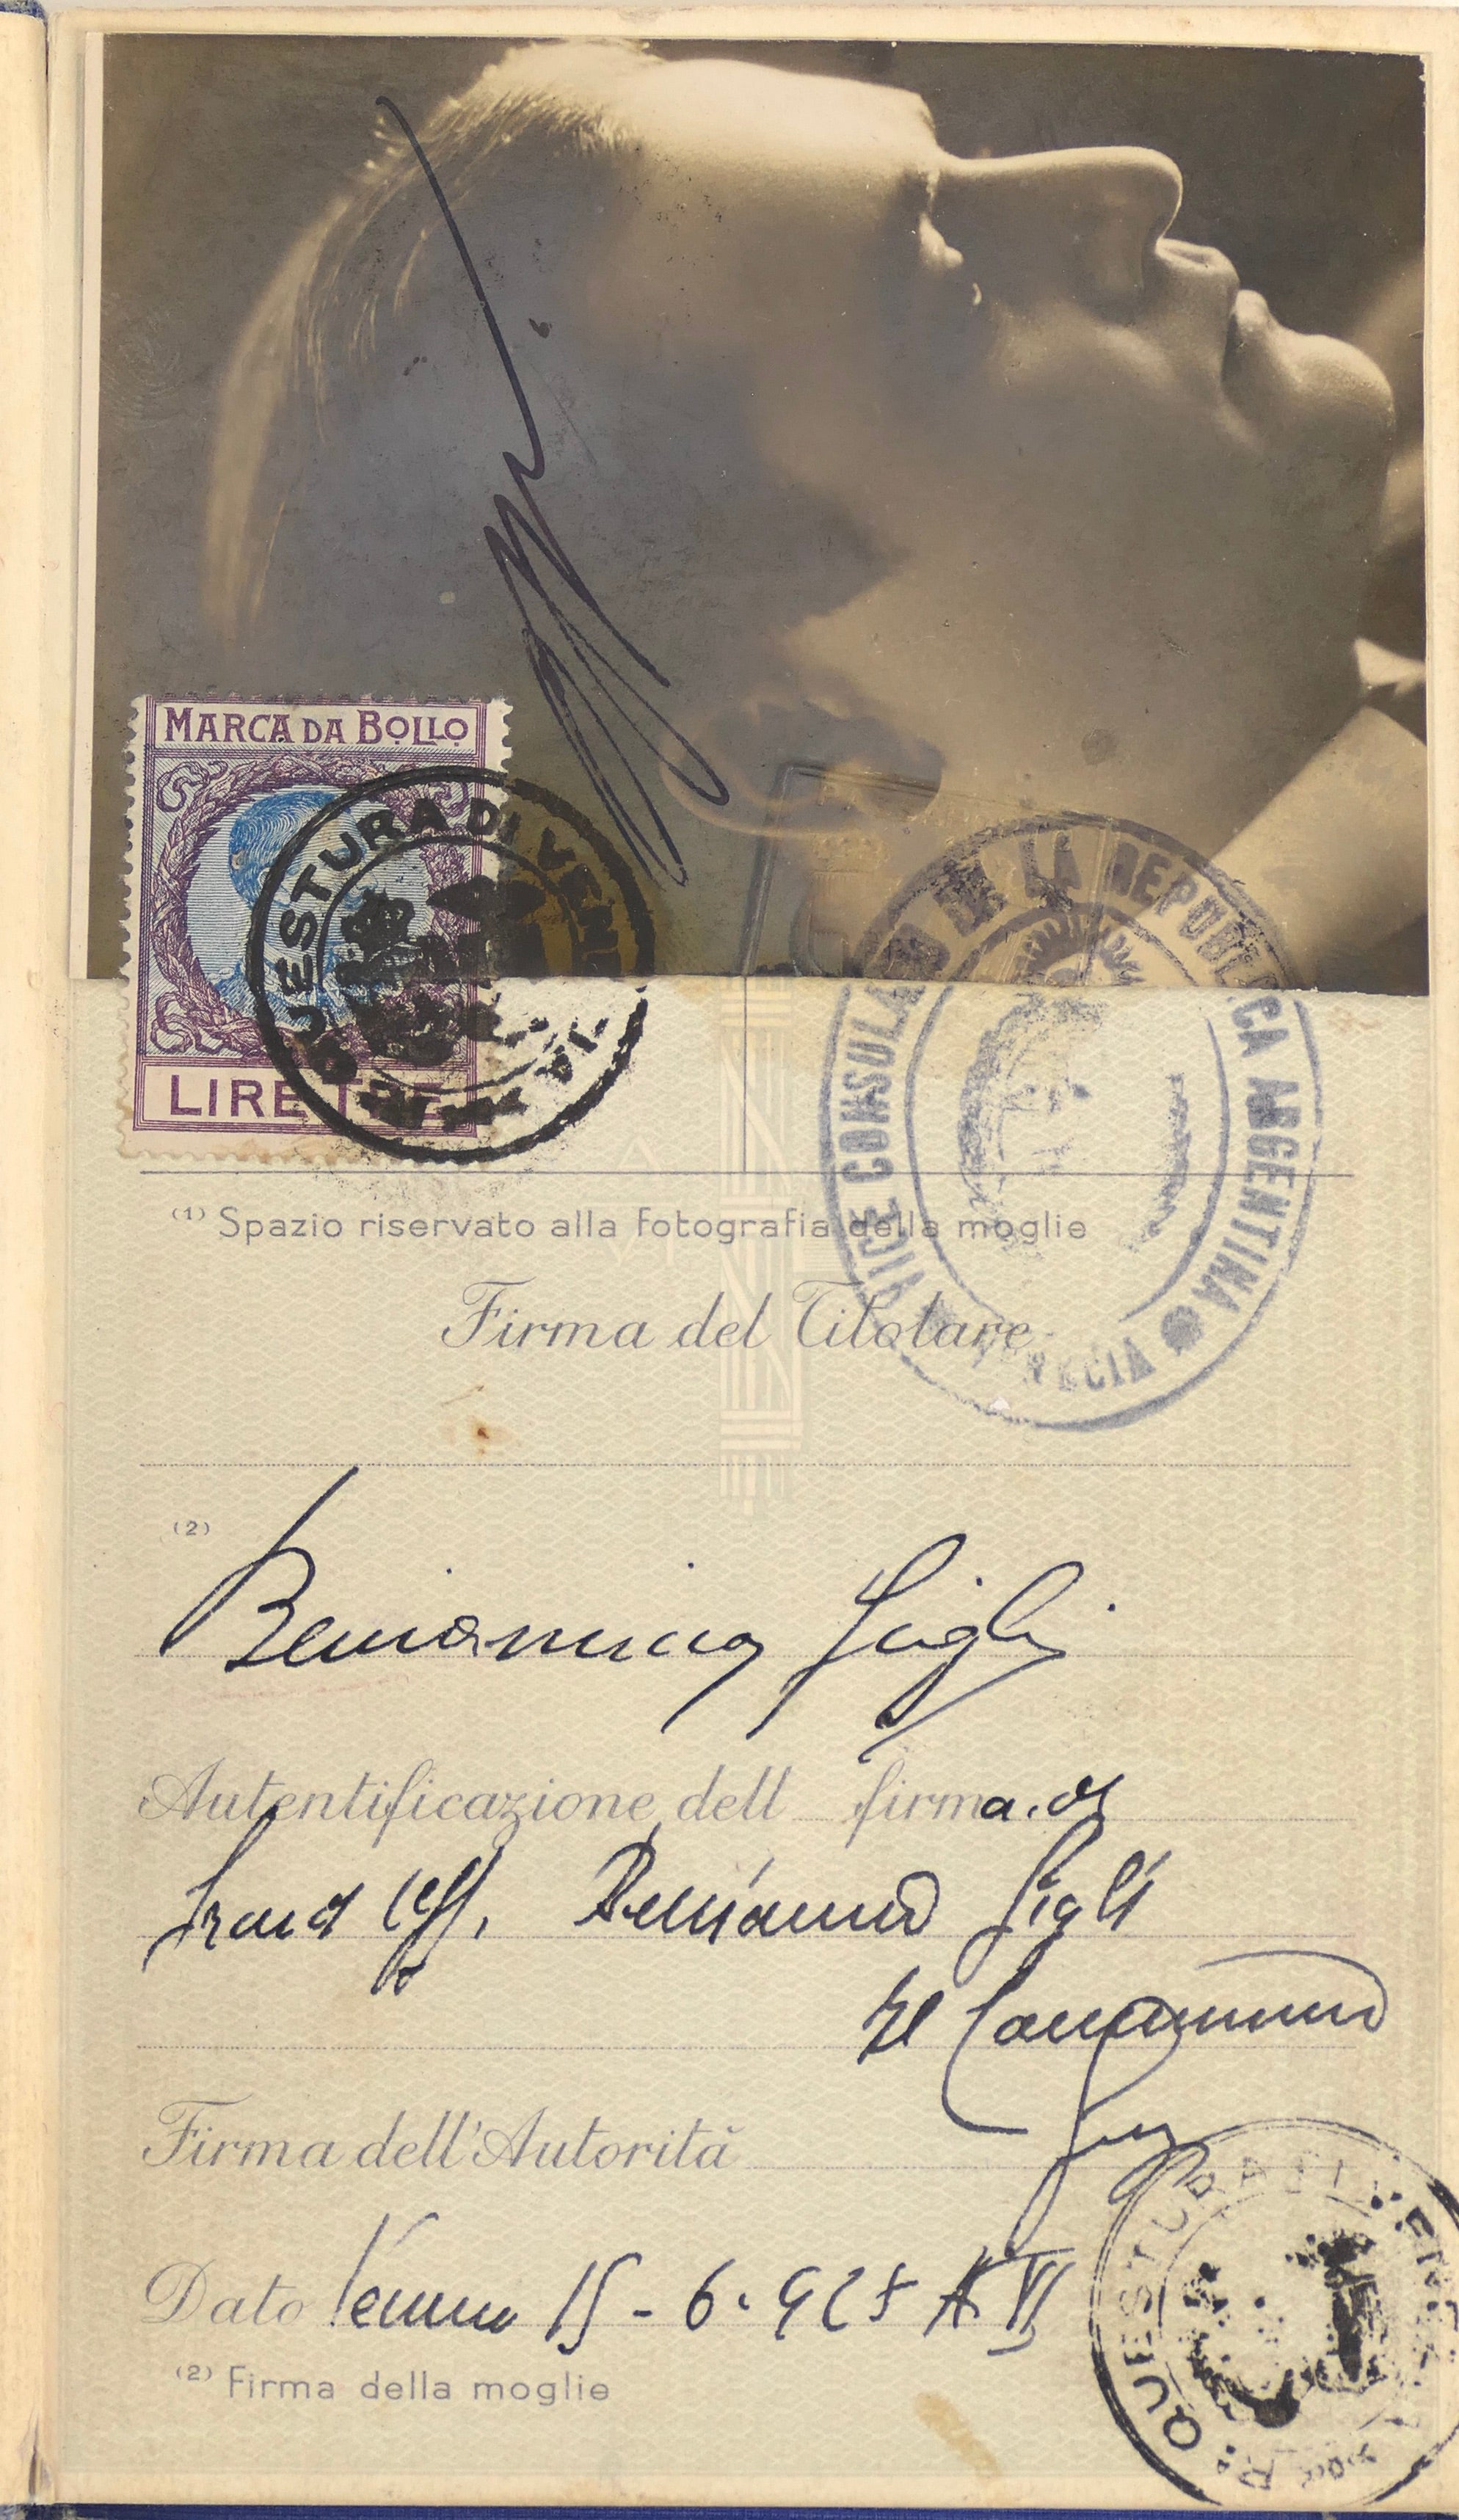 MARCA DA BOLLO
LIRE TRE
R. QUESTURA DI VENEZIA
VICE CONSULADO DE LA REPUBLICA ARGENTINA
VENECIA
(1) Spazio riservato alla fotografia della moglie
Firma del Titolare
(2)
Beniamino Gigli
Autentificazione dell firma di
Grand Uff. Beniamino Gigli
Il
Firma dell'Autorità
Dato 15-6-
(2) Firma della moglie
R. QUESTURA DI VENEZIA